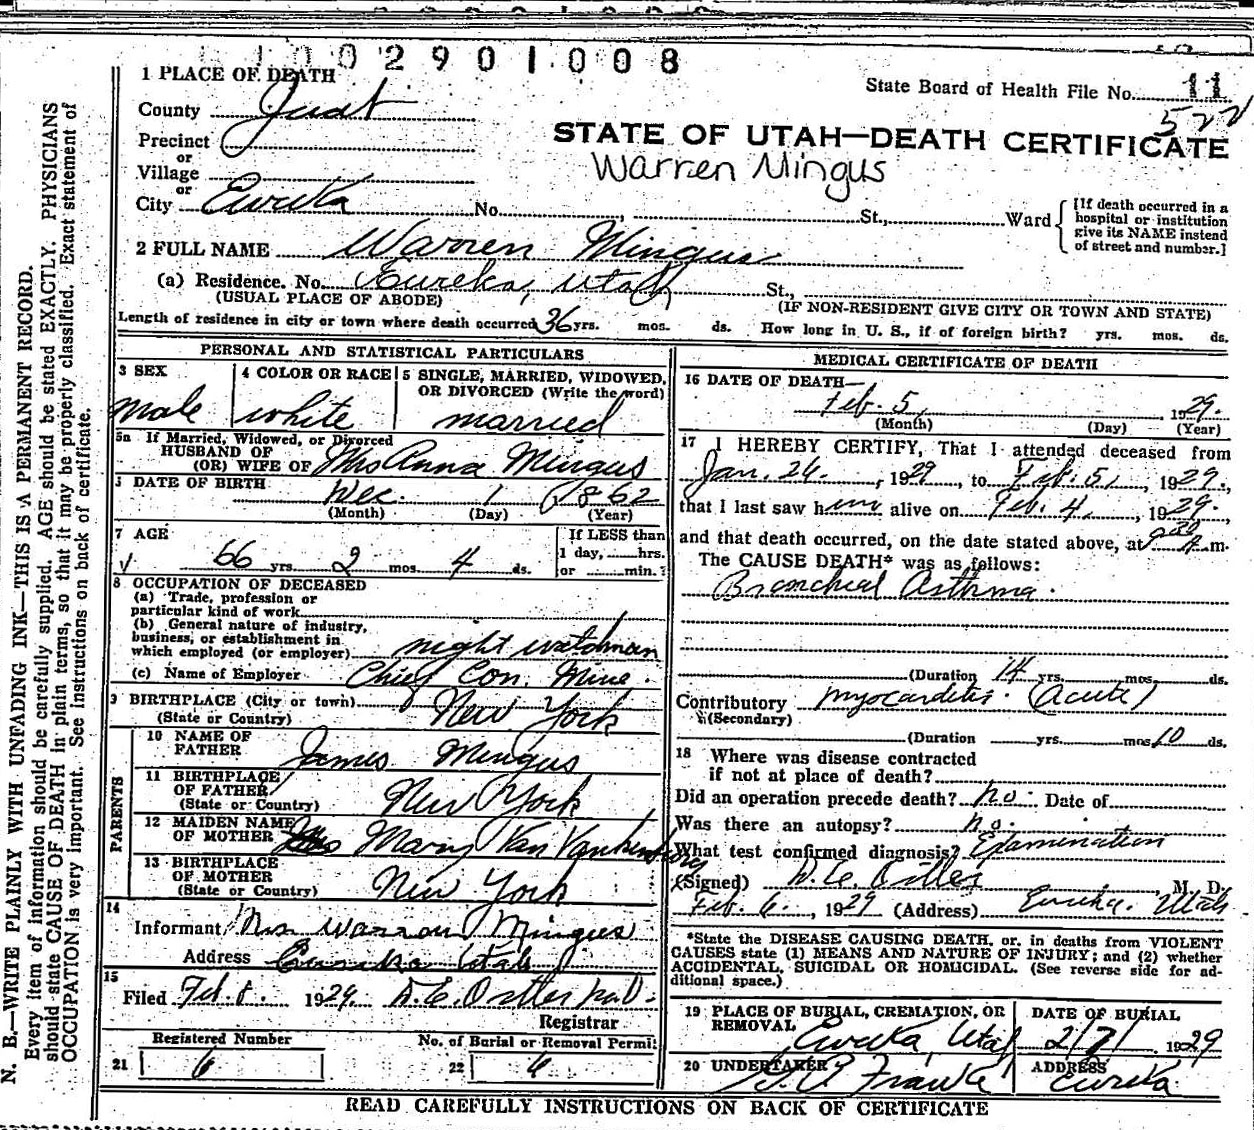 1002901008
1 PLACE OF DEATH
State Board of Health File No. 11
County Juab
522
Precinct
STATE OF UTAH—DEATH CERTIFICATE
or
Village
Warren Mingus
or
City Eureka No. , St., Ward
[If death occurred in a hospital or institution give its NAME instead of street and number.]
2 FULL NAME Warren Mingus
(a) Residence. No. Eureka, Utah St.,
(USUAL PLACE OF ABODE) (IF NON-RESIDENT GIVE CITY OR TOWN AND STATE)
Length of residence in city or town where death occurred 36 yrs. mos. ds. How long in U. S., if of foreign birth? yrs. mos. ds.
PERSONAL AND STATISTICAL PARTICULARS
3 SEX
male
4 COLOR OR RACE
white
5 SINGLE, MARRIED, WIDOWED,
OR DIVORCED (Write the word)
married
5a If Married, Widowed, or Divorced
HUSBAND OF
(OR) WIFE OF Mrs Anna Mingus
DATE OF BIRTH
Dec. 1 1862
(Month) (Day) (Year)
7 AGE
66 yrs. 2 mos. 4 ds.
If LESS than
1 day, hrs.
or min.?
8 OCCUPATION OF DECEASED
(a) Trade, profession or
particular kind of work
(b) General nature of industry,
business, or establishment in
which employed (or employer) night watchman
(c) Name of Employer Chief Con. Mine.
9 BIRTHPLACE (City or town)
(State or Country) New York
PARENTS
10 NAME OF
FATHER James Mingus
11 BIRTHPLACE
OF FATHER
(State or Country) New York
12 MAIDEN NAME
OF MOTHER Mary Van
13 BIRTHPLACE
OF MOTHER
(State or Country) New York
14
Informant Mrs Warren Mingus
Address Eureka Utah
15
Filed Feb. 8. 1929 D. E. Ostler M.D.
Registrar
Registered Number No. of Burial or Removal Permit
21 6 22 6
MEDICAL CERTIFICATE OF DEATH
16 DATE OF DEATH—
Feb. 5, 1929.
(Month) (Day) (Year)
17 I HEREBY CERTIFY, That I attended deceased from
Jan. 26, 1929, to Feb. 5, 1929,
that I last saw him alive on Feb. 4, 1929,
and that death occurred, on the date stated above, at A m.
The CAUSE DEATH* was as follows:
Bronchial Asthma.
(Duration 14 yrs. mos. ds.
Contributory myocarditis. (Acute)
(Secondary)
(Duration yrs. mos. 10 ds.
18 Where was disease contracted
if not at place of death?
Did an operation precede death? no. Date of
Was there an autopsy? no.
What test confirmed diagnosis? Examination
(Signed) D. E. Ostler, M. D.
Feb. 6., 1929 (Address) Eureka. Utah
*State the DISEASE CAUSING DEATH, or, in deaths from VIOLENT
CAUSES state (1) MEANS AND NATURE OF INJURY; and (2) whether
ACCIDENTAL, SUICIDAL OR HOMICIDAL. (See reverse side for ad-
ditional space.)
19 PLACE OF BURIAL, CREMATION, OR
REMOVAL
Eureka, Utah
DATE OF BURIAL
2/7/ 1929
20 UNDERTAKER
Franke
ADDRESS
Eureka
READ CAREFULLY INSTRUCTIONS ON BACK OF CERTIFICATE
N. B.—WRITE PLAINLY WITH UNFADING INK—THIS IS A PERMANENT RECORD.
Every item of information should be carefully supplied. AGE should be stated EXACTLY. PHYSICIANS
should state CAUSE OF DEATH in plain terms, so that it may be properly classified. Exact statement of
OCCUPATION is very important. See instructions on back of certificate.